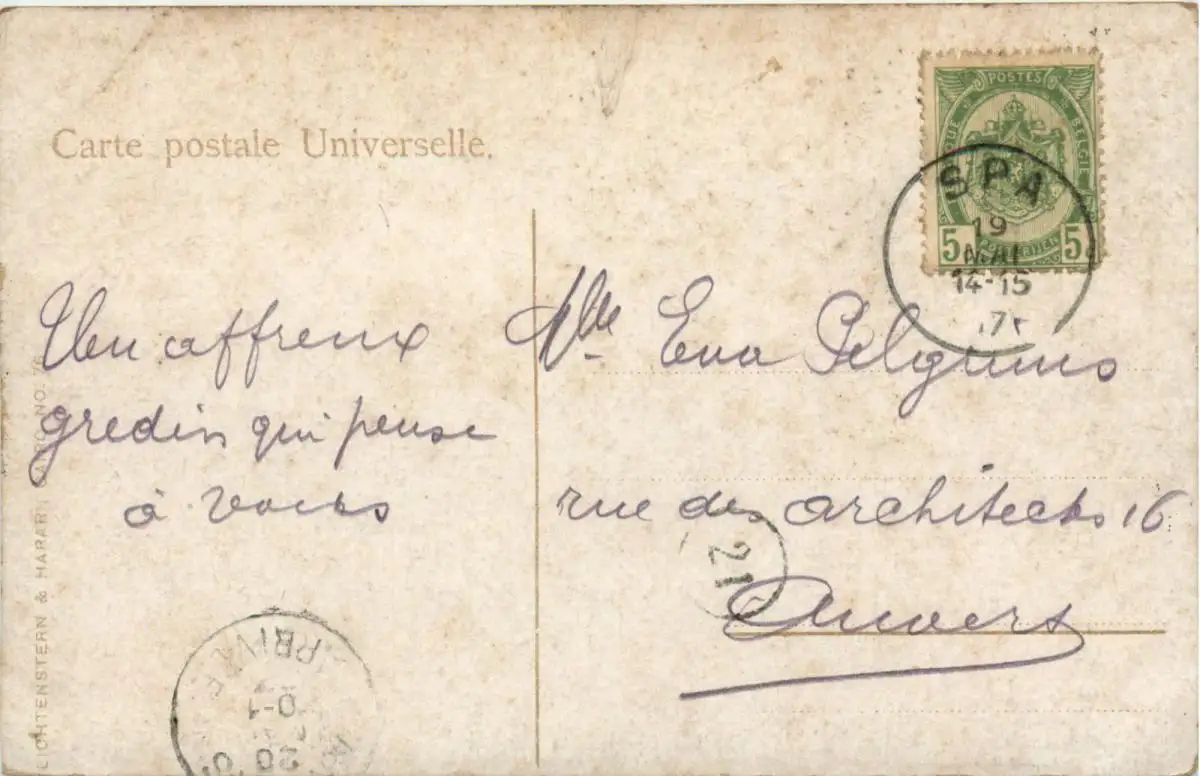 Carte postale Universelle.
POSTES
BELGIE
5 5
SPA
19
MAI
14-15
Un affreux
gredin qui pense
à vous
Mlle Eva Pelgrims
rue des architectes 16
Anvers
21
LICHTENSTERN & HARARI
NO.
20